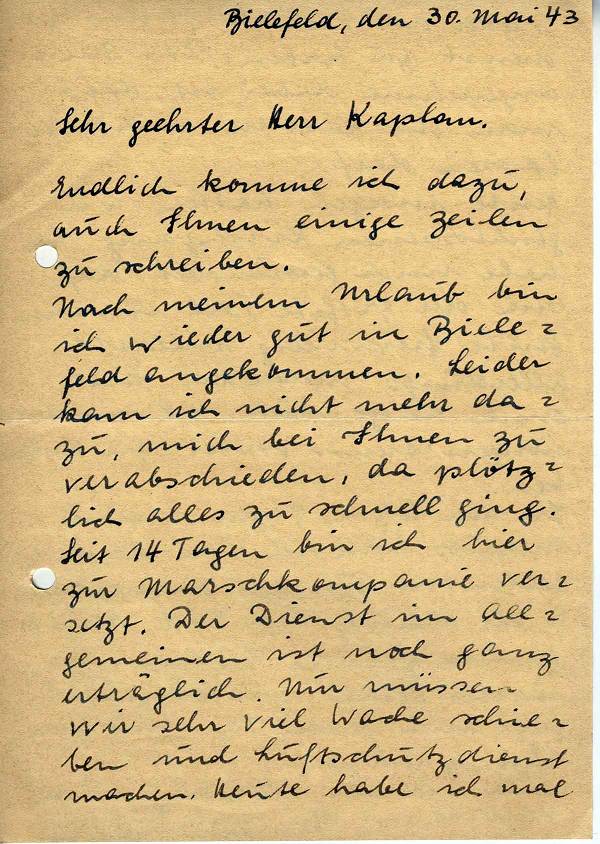 Bielefeld, den 30. Mai 43
Sehr geehrter Herr Kaplan.
Endlich komme ich dazu,
auch Ihnen einige Zeilen
zu schreiben.
Nach meinem Urlaub bin
ich wieder gut in Biele=
feld angekommen. Leider
kam ich nicht mehr da=
zu, mich bei Ihnen zu
verabschieden, da plötz=
lich alles zu schnell ging.
Seit 14 Tagen bin ich hier
zur Marschkompanie ver=
setzt. Der Dienst im all=
gemeinen ist noch ganz
erträglich. Nur müssen
wir sehr viel Wache schie=
ben und Luftschutzdienst
machen. Heute habe ich mal